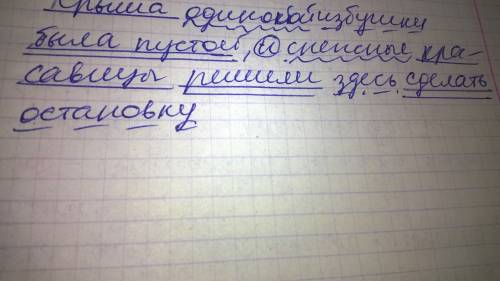 Крыша одинокой избушки
была пустой, и снежные кра-
савицы решили здесь сделать
остановку